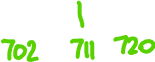 702 711 720